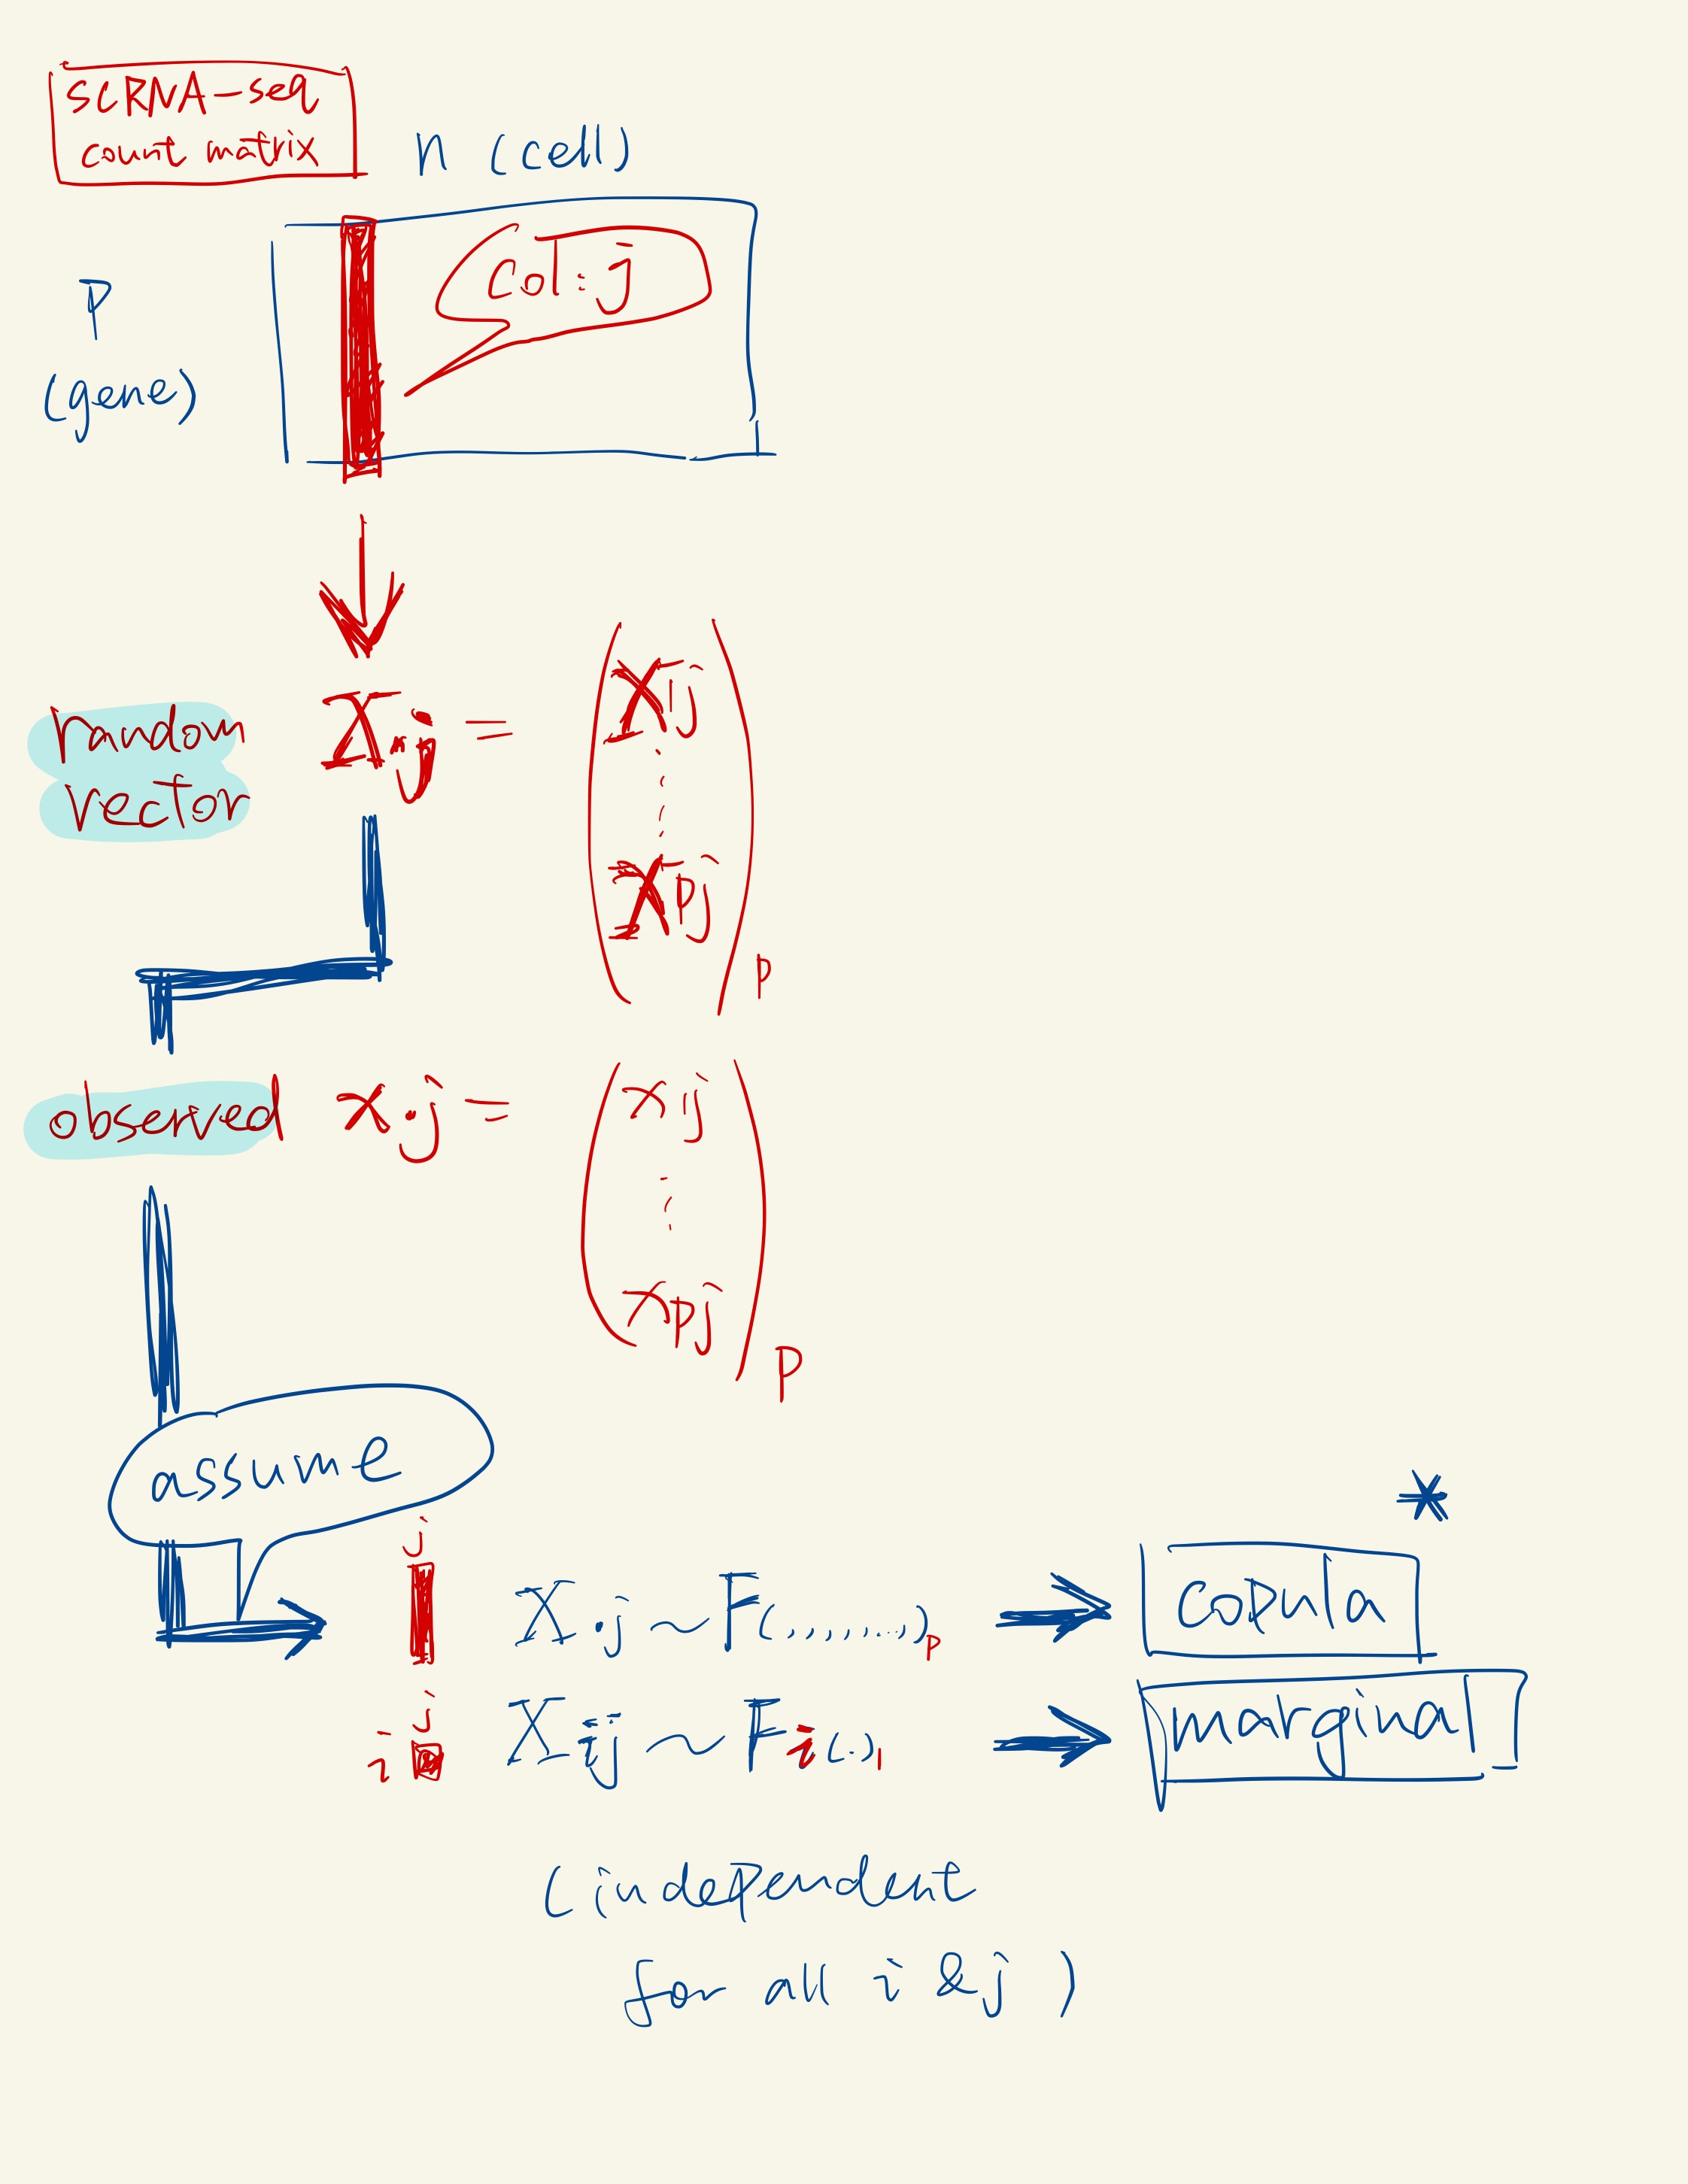 scRNA-seq
count matrix
n (cell)
p
(gene)
Col: j
random
vector
X.j =
X1j
⋮
Xpj
p
observed
x.j =
x1j
⋮
xpj
p
assume
j
X.j ~ F(.,.,.,......)p
*
copula
j
i
Xij ~ Fi(.)1
marginal
(independent
for all i & j )